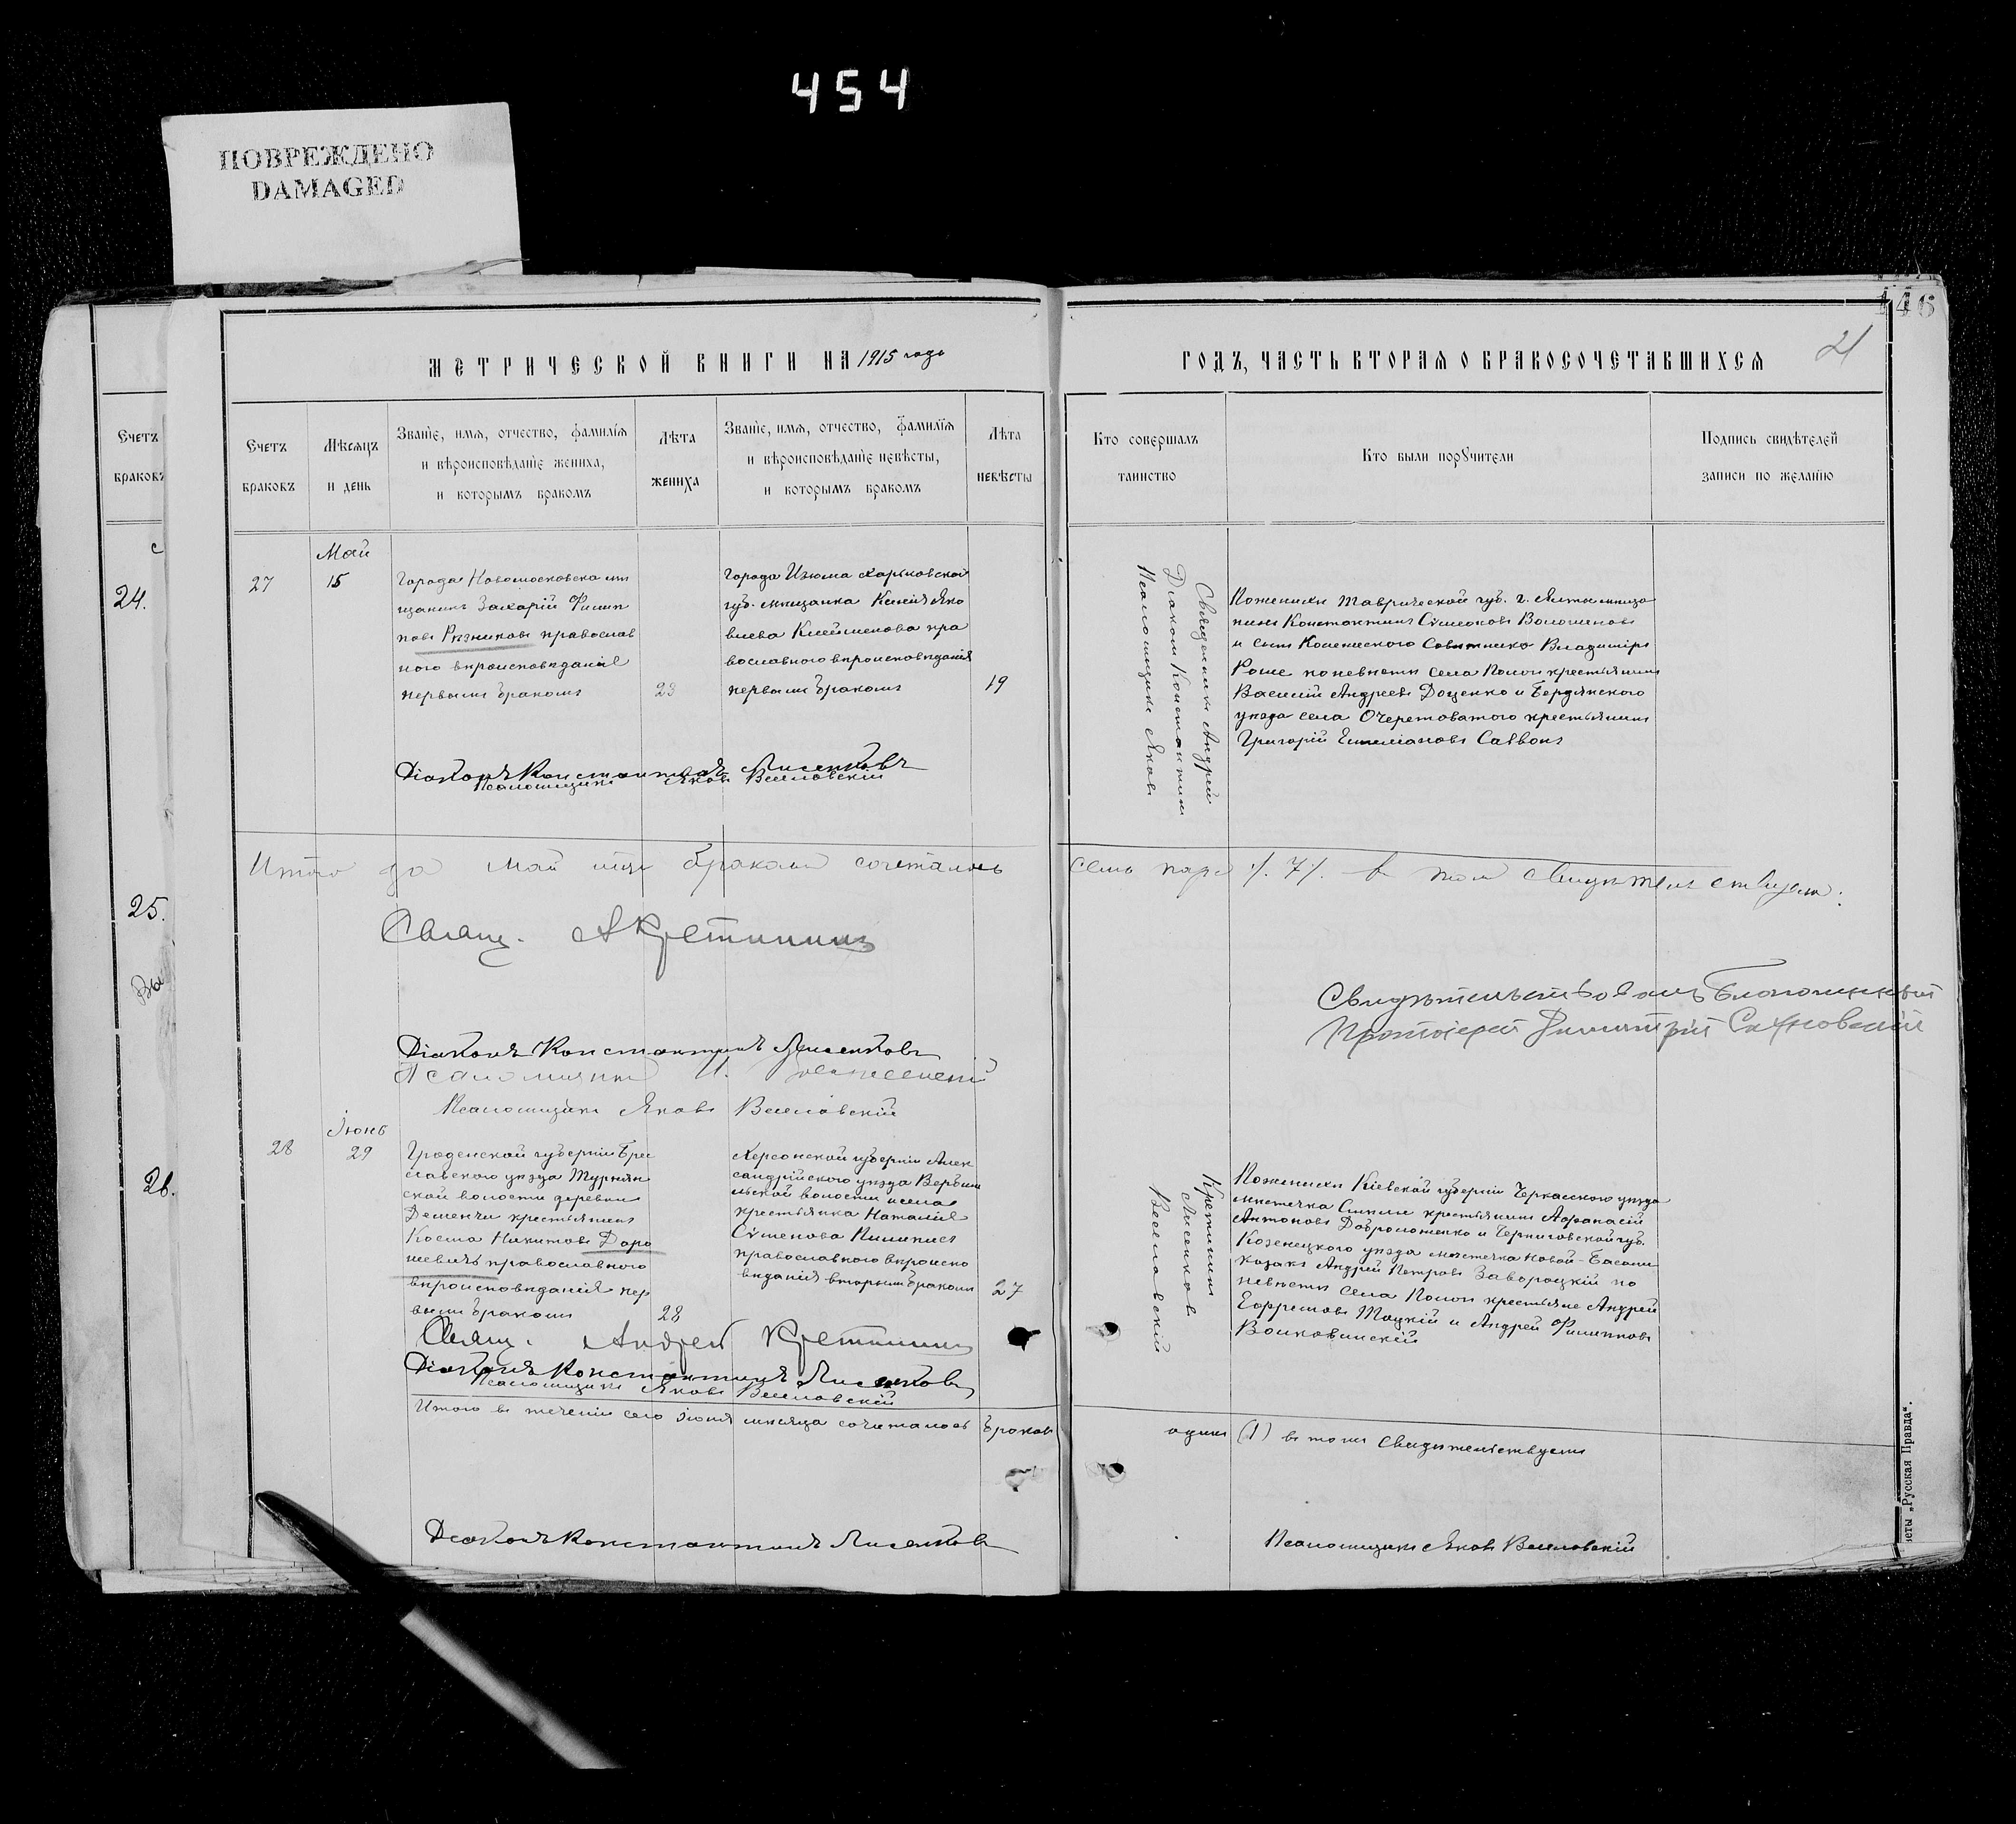 454
ПОВРЕЖДЕНО
DAMAGED
146
21
МЕТРИЧЕСКОЙ КНИГИ НА 1915 годъ
ГОДЪ, ЧАСТЬ ВТОРАЯ О БРАКОСОЧЕТАВШИХСЯ
Счетъ браковъ
24.
25.
Вы
26.
Счетъ браковъ
Мѣсяцъ и день
Званіе, имя, отчество, фамилія и вѣроисповѣданіе жениха, и которымъ бракомъ
Лѣта жениха
Званіе, имя, отчество, фамилія и вѣроисповѣданіе невѣсты, и которымъ бракомъ
Лѣта невѣсты
Кто совершалъ таинство
Кто были поручители
Подпись свидѣтелей записи по желанію
27
Май
15
Города Новомосковска мѣ
щанинъ Захарій Филип
повъ Рѣзниковъ православ
наго вѣроисповѣданія
первымъ бракомъ
23
Города Изюма Харьковской
губ. мѣщанка Ксенія Яко
влева Клейменова пра
вославного вѣроисповѣданія
первымъ бракомъ
19
Священникъ Андрей
Діаконъ Константинъ
Псаломщикъ Яковъ
По женихѣ Таврической губ. г. Ялты мѣща
нинъ Константинъ Сѵмеоновъ Волошеновъ
и сынъ Колежского Совѣтника Владиміръ
Роше по невѣстѣ села Пологи крестьянинъ
Василій Андреевъ Доценко и Бердянского
уѣзда села Очеретоватого крестьянинъ
Григорій Емеліановъ Саввонъ
Діаконъ Константинъ Лисенковъ
Псаломщикъ Яковъ Веселовскій
Итого за Май мѣс бракомъ сочеталось
семь паръ ./. 7 ./. в томъ свидѣтельствуемъ:
Свящ. А Кретининъ
Свидѣтельствовалъ Благочинный
Протоіерей Димитрій
Діаконъ Константинъ Лисенковъ
Псаломщикъ
Псаломщикъ Яковъ Веселовскій
28
Іюнь
29
Гроденской губерніи Брес
славского уѣзда
ской волости деревни
Деменчи крестьянинъ
Косма Никитовъ Доро
шевичъ православного
вѣроисповѣданія пер
вымъ бракомъ
28
Херсонской губерніи Алек
сандрійского уѣзда
волости и села
крестьянка Наталія
Сѵменова
православного вѣроиспо
вѣданія вторымъ бракомъ
27
Кретининъ
Лисенков
Веселовскій
По женихѣ Кіевской губерніи Черкасского уѣзда
мѣстечка Смѣлы крестьянинъ Афанасій
Антоновъ и Черниговской губ.
Козелецкого уѣзда мѣстечка Новой-Басани
казакъ Андрей Петровъ Забороцкій по
невѣстѣ села Пологи крестьяне Андрей
Ефремовъ Тоцкій и Андрей Филипповъ
Волковинскій
Свящ. Андрей Кретининъ
Діаконъ Константинъ Лисенковъ
Псаломщикъ Яковъ Веселовскій
Итого въ теченіи сего Іюня мѣсяца сочеталось браковъ
одинъ (1) въ томъ свидѣтельствуемъ
Діаконъ Константинъ Лисенков
Псаломщикъ Яковъ Веселовскій
„Русская Правда“.